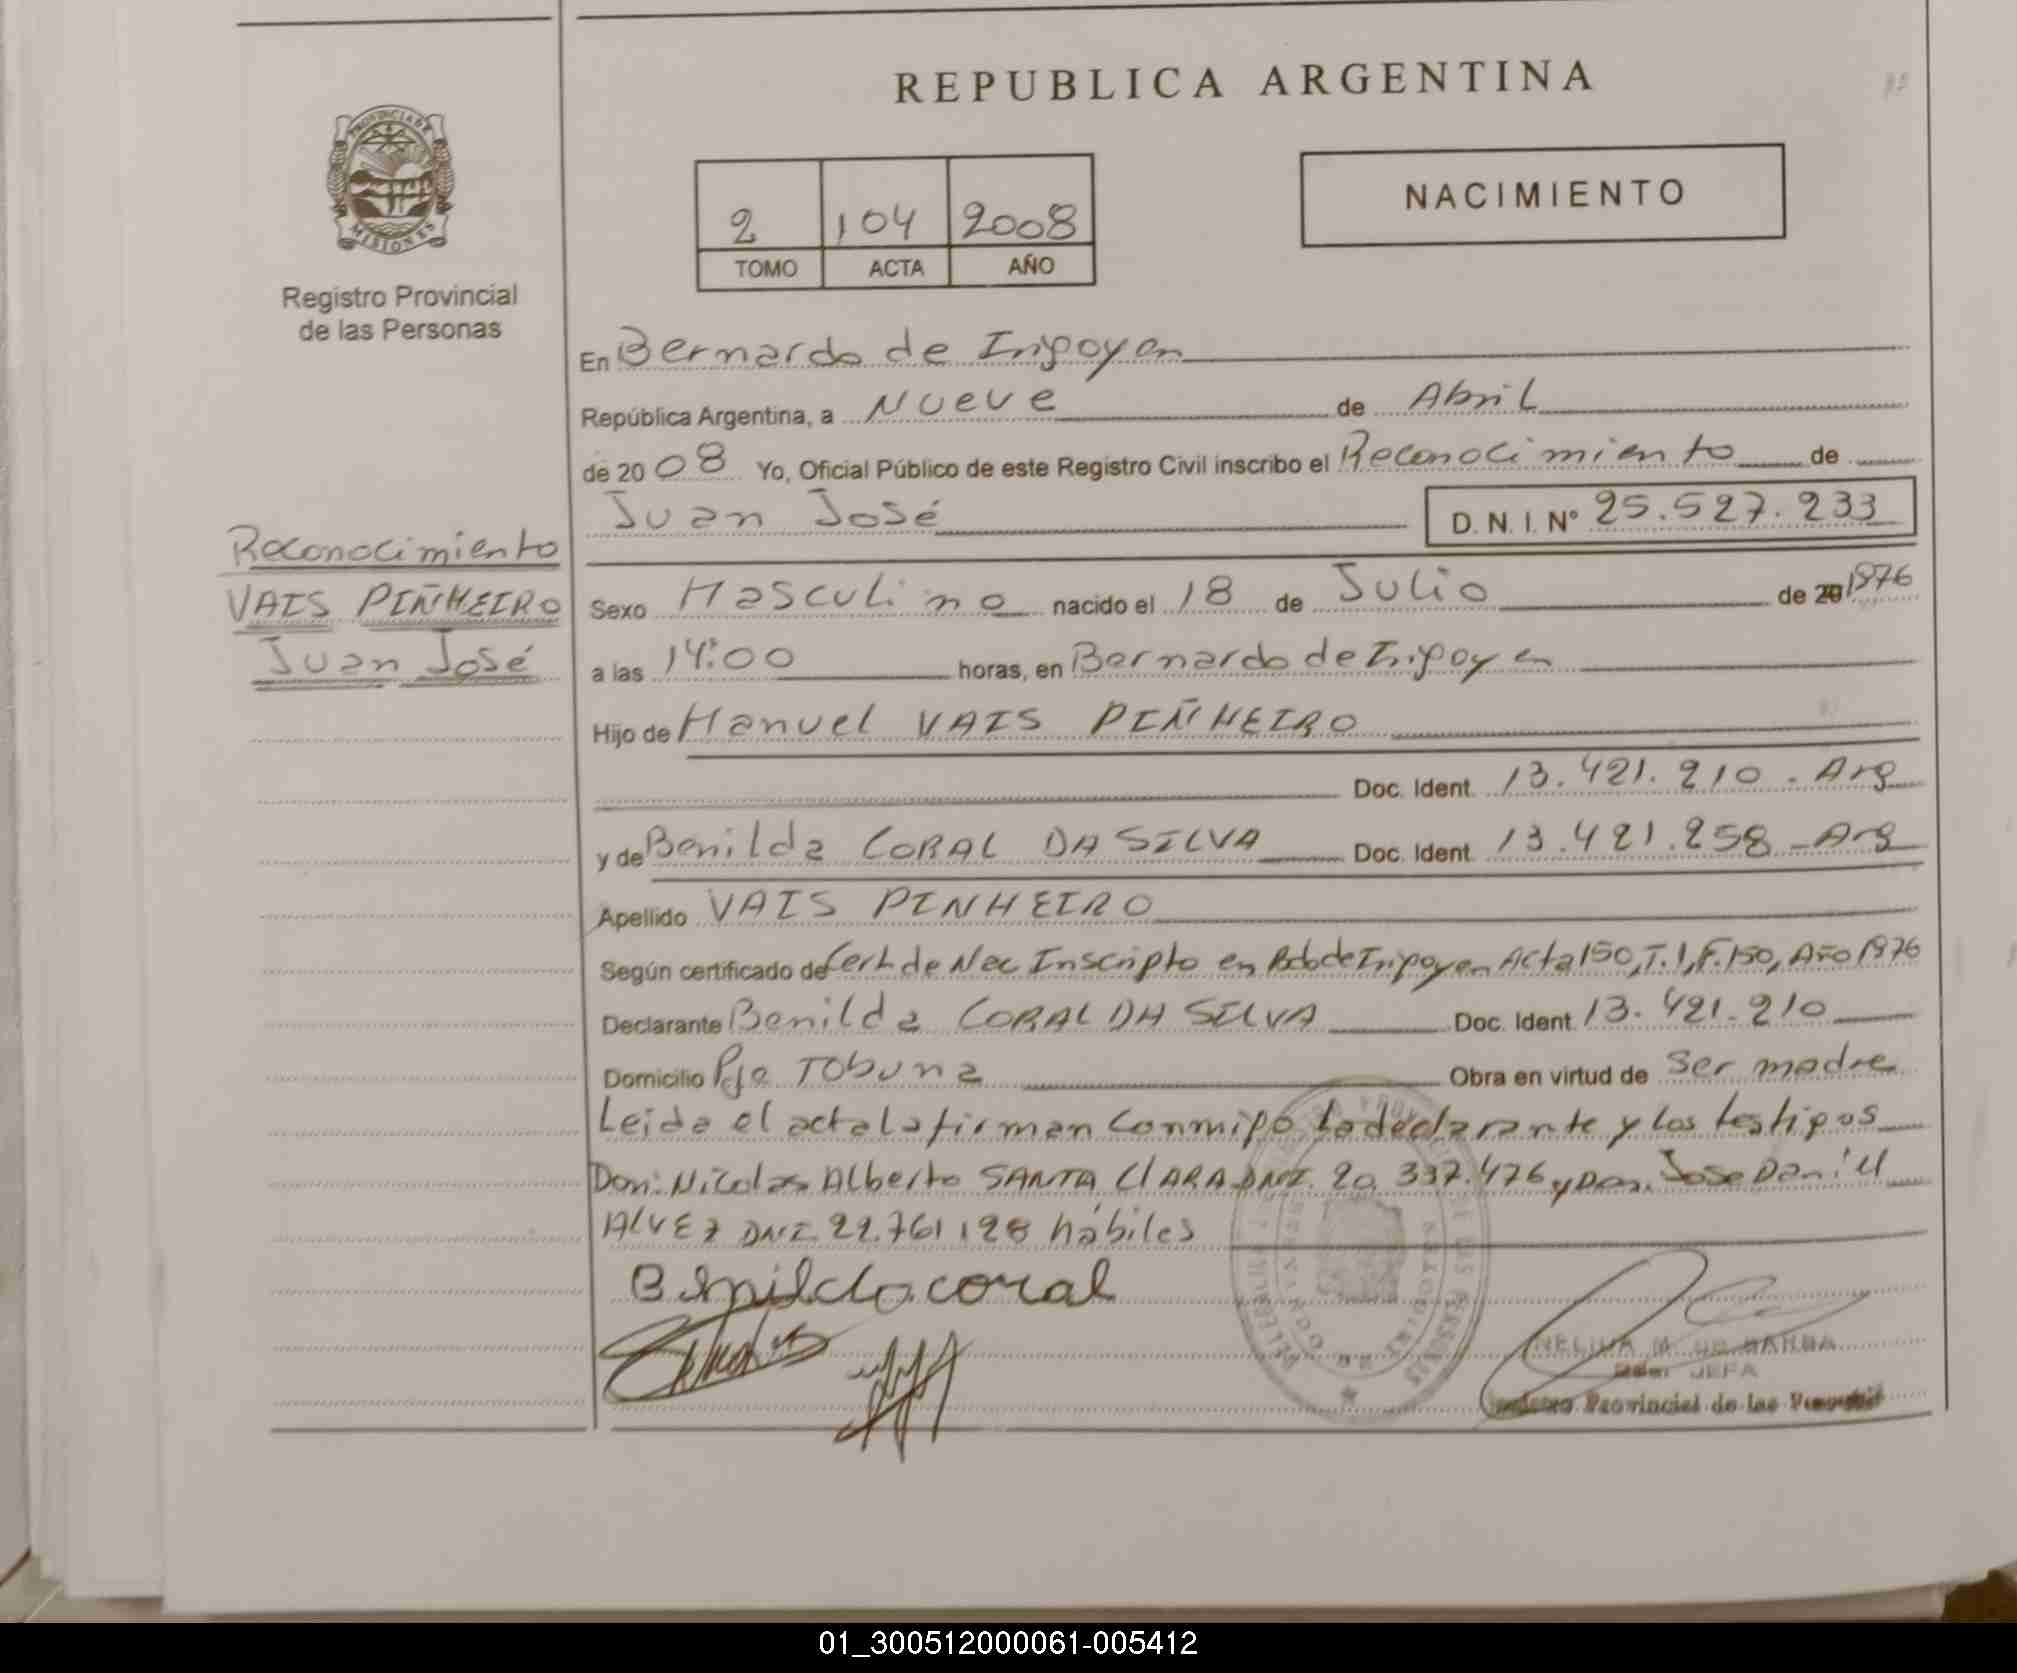 REPUBLICA ARGENTINA
PROVINCIA DE
MISIONES
Registro Provincial
de las Personas
2 104 2008
TOMO ACTA AÑO
NACIMIENTO
En Bernardo de Irigoyen
República Argentina, a Nueve de Abril
de 2008 Yo, Oficial Público de este Registro Civil inscribo el Reconocimiento de
Juan José D. N. I. Nº 25.527.233
Reconocimiento
VAIS PIÑHEIRO
Juan José
Sexo Masculino nacido el 18 de Julio de 20 1976
a las 14:00 horas, en Bernardo de Irigoyen
Hijo de Manuel VAIS PIÑHEIRO
Doc. Ident. 13.421.210 - Arg
y de Benilda CORAL DA SILVA Doc. Ident. 13.421.258 - Arg
Apellido VAIS PINHEIRO
Según certificado de Cert de Nac Inscripto en Bdo de Irigoyen Acta 150, T.1, F.150, Año 1976
Declarante Benilda CORAL DA SILVA Doc. Ident. 13.421.210
Domicilio Pje Tobuna Obra en virtud de Ser madre
Leida el acta la firman conmigo la declarante y los testigos
Don: Nicolas Alberto SANTA CLARA DNI. 20.337.476 y Don. Jose Daniel
ALVEZ DNI 22.761.128 hábiles
Benilda coral
JEFA
Provincial de las
01_300512000061-005412